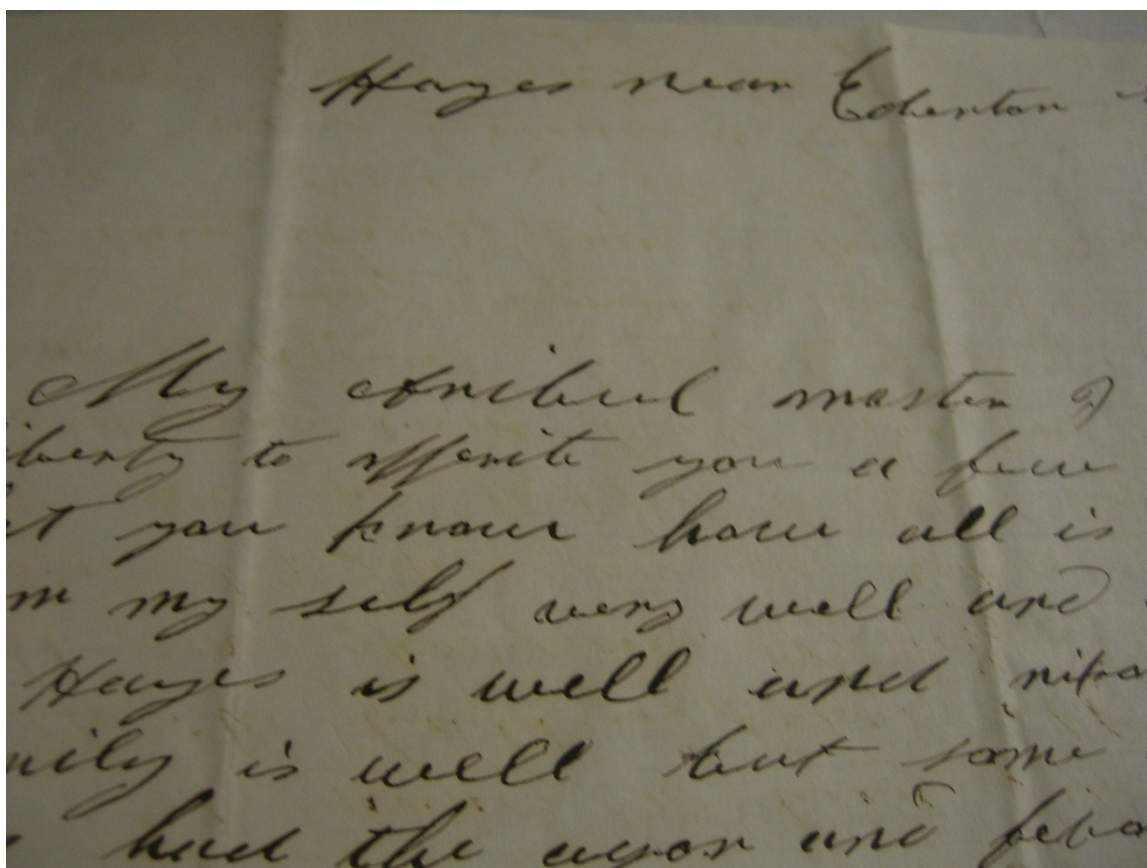 Hayes near Edenton
My master I
iberty to write you a few
t you know how all is
m my self very well and
Hayes is well and
mily is well but some
had the agar and feba